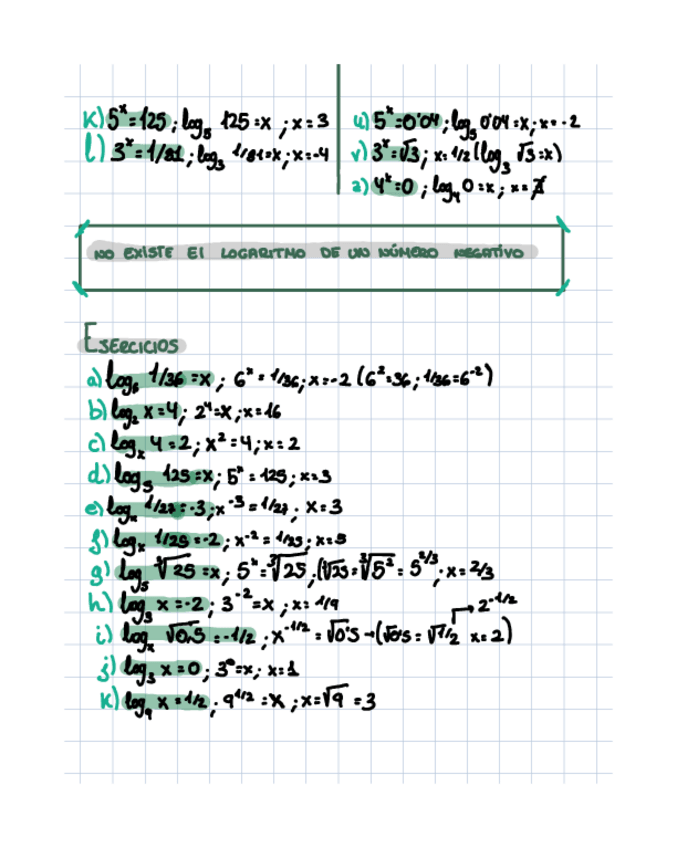 K) 5ˣ=125; log₅ 125=x; x=3
l) 3ˣ=1/81; log₃ 1/81=x; x=-4
u) 5ˣ=0'04; log₅ 0'04=x; x=-2
v) 3ˣ=√3; x=1/2 (log₃ √3=x)
z) 4ˣ=0; log₄ 0=x; x=∄
NO EXISTE El LOGARITMO DE UN NÚMERO NEGATIVO
EJERCICIOS
a) log₆ 1/36=x; 6ˣ=1/36; x=-2 (6²=36; 1/36=6⁻²)
b) log₂ x=4; 2⁴=x; x=16
c) logₓ 4=2; x²=4; x=2
d) log₅ 125=x; 5ˣ=125; x=3
e) logₓ 1/27=-3; x⁻³=1/27; x=3
f) logₓ 1/25=-2; x⁻²=1/25; x=5
g) log₅ ∛25=x; 5ˣ=∛25; (∛25=∛5²=5²ᐟ³; x=2/3
h) log₃ x=-2; 3⁻²=x; x=1/9
→2⁻¹ᐟ²
i) logₓ √0,5=-1/2; x⁻¹ᐟ²=√0'5→(√0'5=√1/2 x=2)
j) log₃ x=0; 3⁰=x; x=1
K) log₉ x=1/2; 9¹ᐟ²=x; x=√9=3